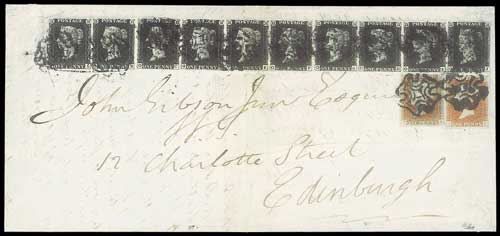 POSTAGE POSTAGE POSTAGE POSTAGE POSTAGE POSTAGE POSTAGE POSTAGE POSTAGE POSTAGE
ONE PENNY ONE PENNY ONE PENNY ONE PENNY ONE PENNY ONE PENNY ONE PENNY ONE PENNY ONE PENNY ONE PENNY
John Gibson Junr Esquire
ONE PENNY ONE PENNY
12 Charlotte Street
Edinburgh